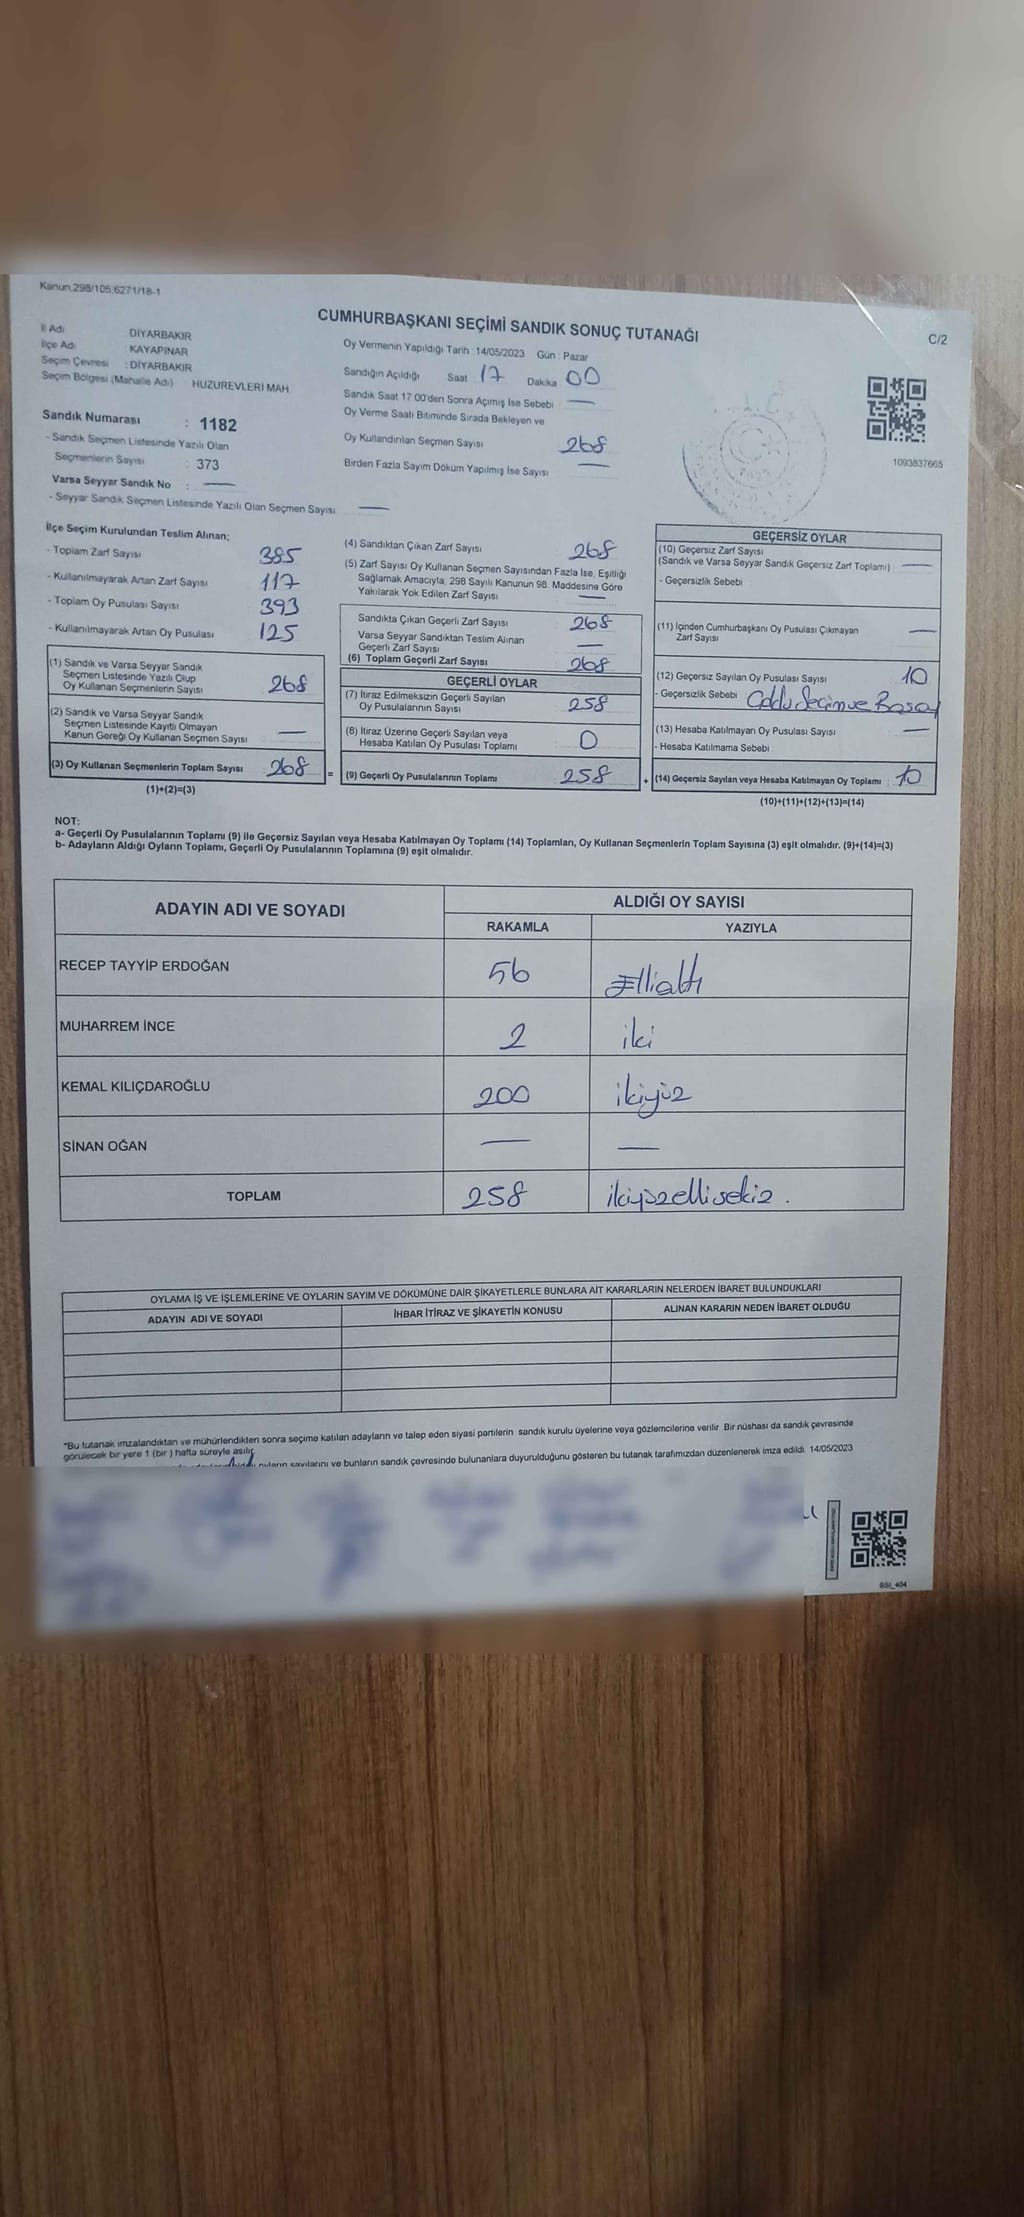 Kanun 298/105,6271/18-1
CUMHURBAŞKANI SEÇİMİ SANDIK SONUÇ TUTANAĞI
C/2
İl Adı DİYARBAKIR
İlçe Adı KAYAPINAR
Seçim Çevresi : DİYARBAKIR
Seçim Bölgesi (Mahalle Adı) HUZUREVLERİ MAH
Sandık Numarası : 1182
- Sandık Seçmen Listesinde Yazılı Olan
Seçmenlerin Sayısı : 373
Varsa Seyyar Sandık No : —
- Seyyar Sandık Seçmen Listesinde Yazılı Olan Seçmen Sayısı —
Oy Vermenin Yapıldığı Tarih : 14/05/2023 Gün : Pazar
Sandığın Açıldığı Saat 17 Dakika 00
Sandık Saat 17:00'den Sonra Açımış İse Sebebi —
Oy Verme Saati Bitiminde Sırada Bekleyen ve
Oy Kullandırılan Seçmen Sayısı 268
Birden Fazla Sayım Döküm Yapılmış İse Sayısı —
T.C.
1093837665
İlçe Seçim Kurulundan Teslim Alınan;
- Toplam Zarf Sayısı 385
- Kullanılmayarak Artan Zarf Sayısı 117
- Toplam Oy Pusulası Sayısı 393
- Kullanılmayarak Artan Oy Pusulası 125
(1) Sandık ve Varsa Seyyar Sandık
Seçmen Listesinde Yazılı Olup
Oy Kullanan Seçmenlerin Sayısı 268
(2) Sandık ve Varsa Seyyar Sandık
Seçmen Listesinde Kayıtlı Olmayan
Kanun Gereği Oy Kullanan Seçmen Sayısı —
(3) Oy Kullanan Seçmenlerin Toplam Sayısı 268 =
(1)+(2)=(3)
(4) Sandıktan Çıkan Zarf Sayısı 268
(5) Zarf Sayısı Oy Kullanan Seçmen Sayısından Fazla İse, Eşitliği
Sağlamak Amacıyla, 298 Sayılı Kanunun 98. Maddesine Göre
Yakılarak Yok Edilen Zarf Sayısı —
Sandıkta Çıkan Geçerli Zarf Sayısı 268
Varsa Seyyar Sandıktan Teslim Alınan
Geçerli Zarf Sayısı —
(6) Toplam Geçerli Zarf Sayısı 268
GEÇERLİ OYLAR
(7) İtiraz Edilmeksizin Geçerli Sayılan
Oy Pusulalarının Sayısı 258
(8) İtiraz Üzerine Geçerli Sayılan veya
Hesaba Katılan Oy Pusulası Toplamı 0
(9) Geçerli Oy Pusulalarının Toplamı 258 +
GEÇERSİZ OYLAR
(10) Geçersiz Zarf Sayısı
(Sandık ve Varsa Seyyar Sandık Geçersiz Zarf Toplamı) —
- Geçersizlik Sebebi
(11) İçinden Cumhurbaşkanı Oy Pusulası Çıkmayan
Zarf Sayısı —
(12) Geçersiz Sayılan Oy Pusulası Sayısı 10
- Geçersizlik Sebebi
(13) Hesaba Katılmayan Oy Pusulası Sayısı —
- Hesaba Katılmama Sebebi
(14) Geçersiz Sayılan veya Hesaba Katılmayan Oy Toplamı 10
(10)+(11)+(12)+(13)=(14)
NOT:
a- Geçerli Oy Pusulalarının Toplamı (9) ile Geçersiz Sayılan veya Hesaba Katılmayan Oy Toplamı (14) Toplamları, Oy Kullanan Seçmenlerin Toplam Sayısına (3) eşit olmalıdır. (9)+(14)=(3)
b- Adayların Aldığı Oyların Toplamı, Geçerli Oy Pusulalarının Toplamına (9) eşit olmalıdır.
ADAYIN ADI VE SOYADI ALDIĞI OY SAYISI
RAKAMLA YAZIYLA
RECEP TAYYİP ERDOĞAN 56 Ellialtı
MUHARREM İNCE 2 iki
KEMAL KILIÇDAROĞLU 200 ikiyüz
SİNAN OĞAN — —
TOPLAM 258 ikiyüzellisekiz.
OYLAMA İŞ VE İŞLEMLERİNE VE OYLARIN SAYIM VE DÖKÜMÜNE DAİR ŞİKAYETLERLE BUNLARA AİT KARARLARIN NELERDEN İBARET BULUNDUKLARI
ADAYIN ADI VE SOYADI İHBAR İTİRAZ VE ŞİKAYETİN KONUSU ALINAN KARARIN NEDEN İBARET OLDUĞU
"Bu tutanak imzalandıktan ve mühürlendikten sonra seçime katılan adayların ve talep eden siyasi partilerin sandık kurulu üyelerine veya gözlemcilerine verilir. Bir nüshası da sandık çevresinde
görülecek bir yere 1 (bir ) hafta süreyle asılır
oyların sayılarını ve bunların sandık çevresinde bulunanlara duyurulduğunu gösteren bu tutanak tarafımızdan düzenlenerek imza edildi. 14/05/2023
SSI_404